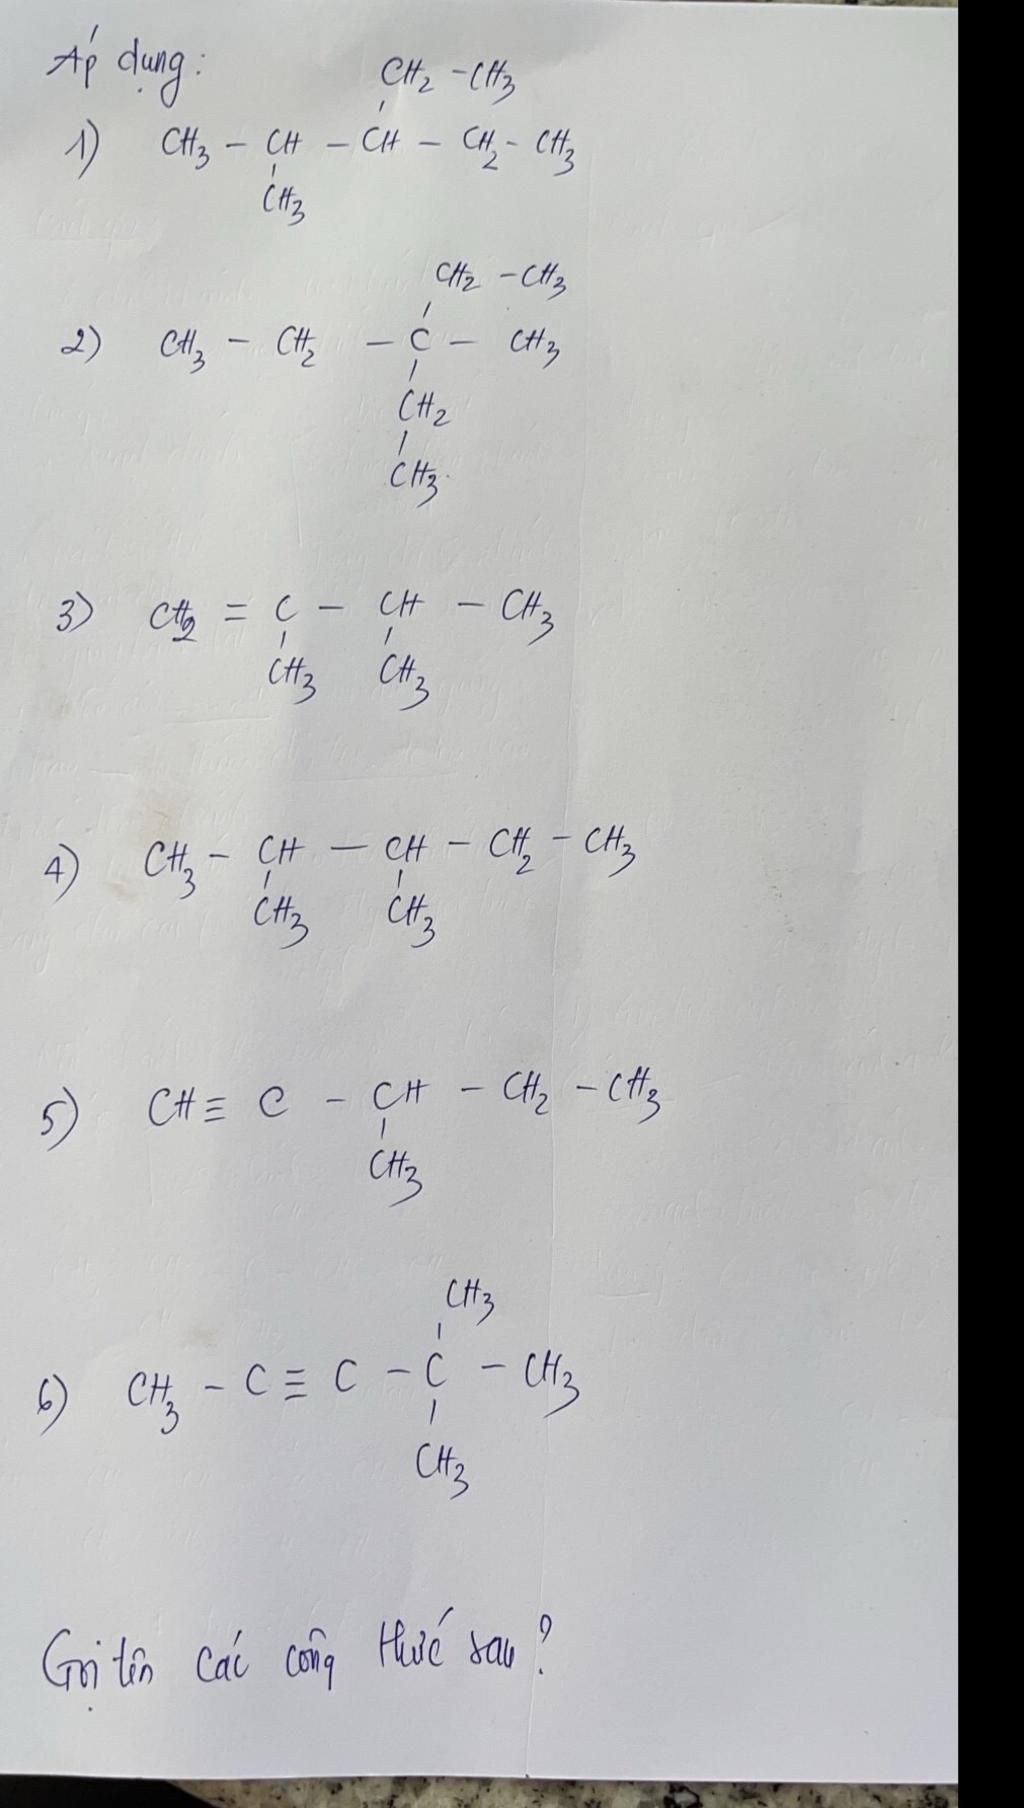 Áp dụng:
CH2 - CH3
1) CH3 - CH - CH - CH2 - CH3
CH3
CH2 - CH3
2) CH3 - CH2 - C - CH3
CH2
CH3
3) CH2 = C - CH - CH3
CH3 CH3
4) CH3 - CH - CH - CH2 - CH3
CH3 CH3
5) CH ≡ C - CH - CH2 - CH3
CH3
CH3
6) CH3 - C ≡ C - C - CH3
CH3
Gọi tên các công thức sau?